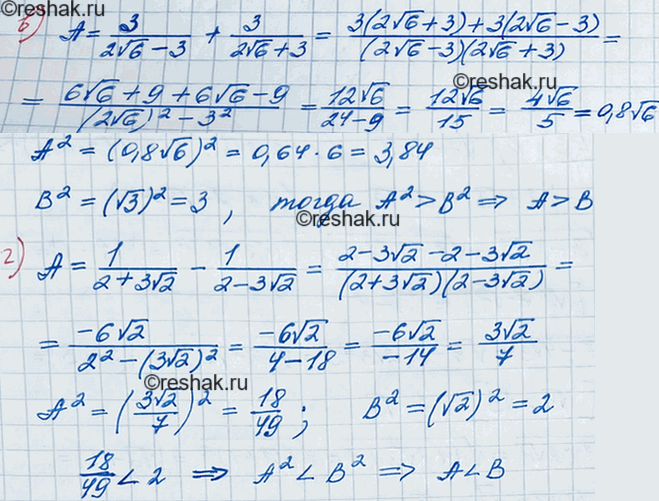 в) A = 3/(2√6-3) + 3/(2√6+3) = (3(2√6+3)+3(2√6-3))/((2√6-3)(2√6+3)) =
©reshak.ru
= (6√6+9+6√6-9)/((2√6)²-3²) = 12√6/(24-9) = 12√6/15 = 4√6/5 = 0,8√6
A² = (0,8√6)² = 0,64·6 = 3,84
B² = (√3)² = 3, тогда A² > B² ⟹ A > B
©reshak.ru
г) A = 1/(2+3√2) - 1/(2-3√2) = (2-3√2-2-3√2)/((2+3√2)(2-3√2)) =
= -6√2/(2²-(3√2)²) = -6√2/(4-18) = -6√2/-14 = 3√2/7
©reshak.ru
A² = (3√2/7)² = 18/49; B² = (√2)² = 2
18/49 < 2 ⟹ A² < B² ⟹ A < B